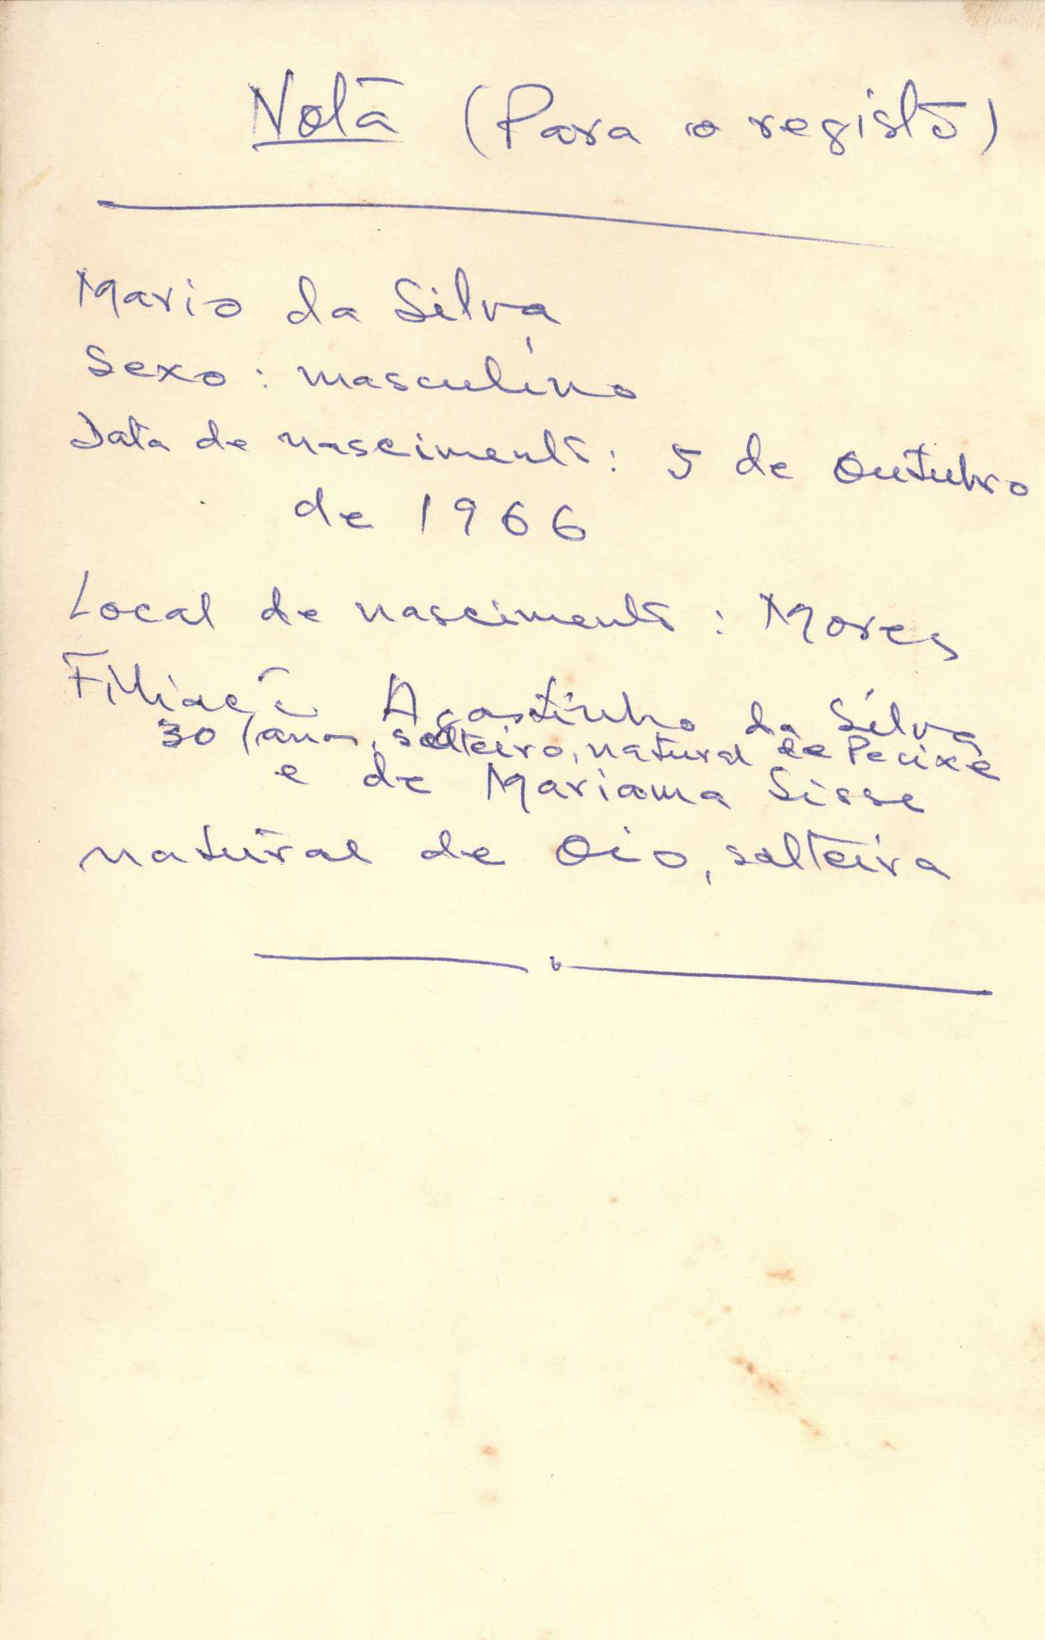 Nota (Para o registo)
Mario da Silva
Sexo: masculino
Data de nascimento: 5 de Outubro
de 1966
Local de nascimento: Mores
Filiação Agostinho da Silva
30 anos, solteiro, natural de Pecixe
e de Mariama Sisse
natural de Oio, solteira